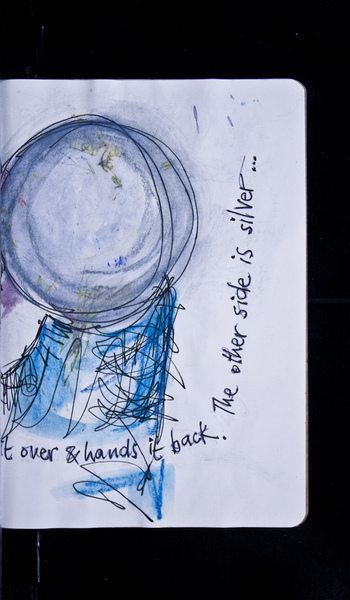 t over & hands it back.
The other side is silver...